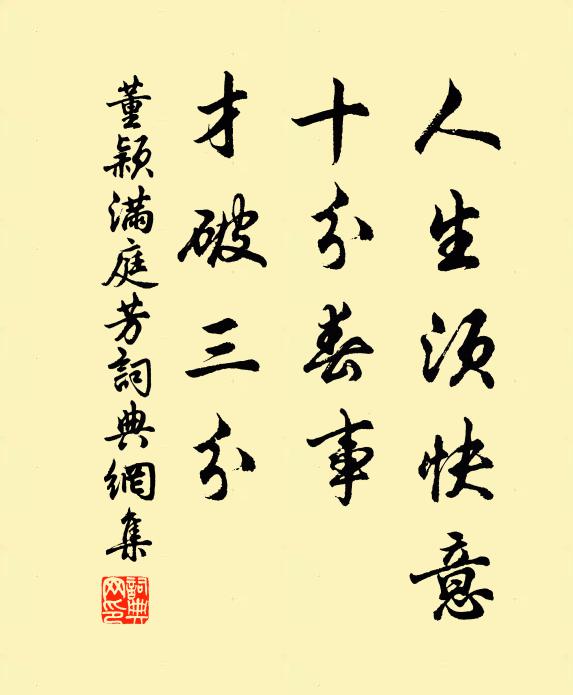 人生須快意
十分春事
才破三分
董穎滿庭芳詞典網集
詞典網印